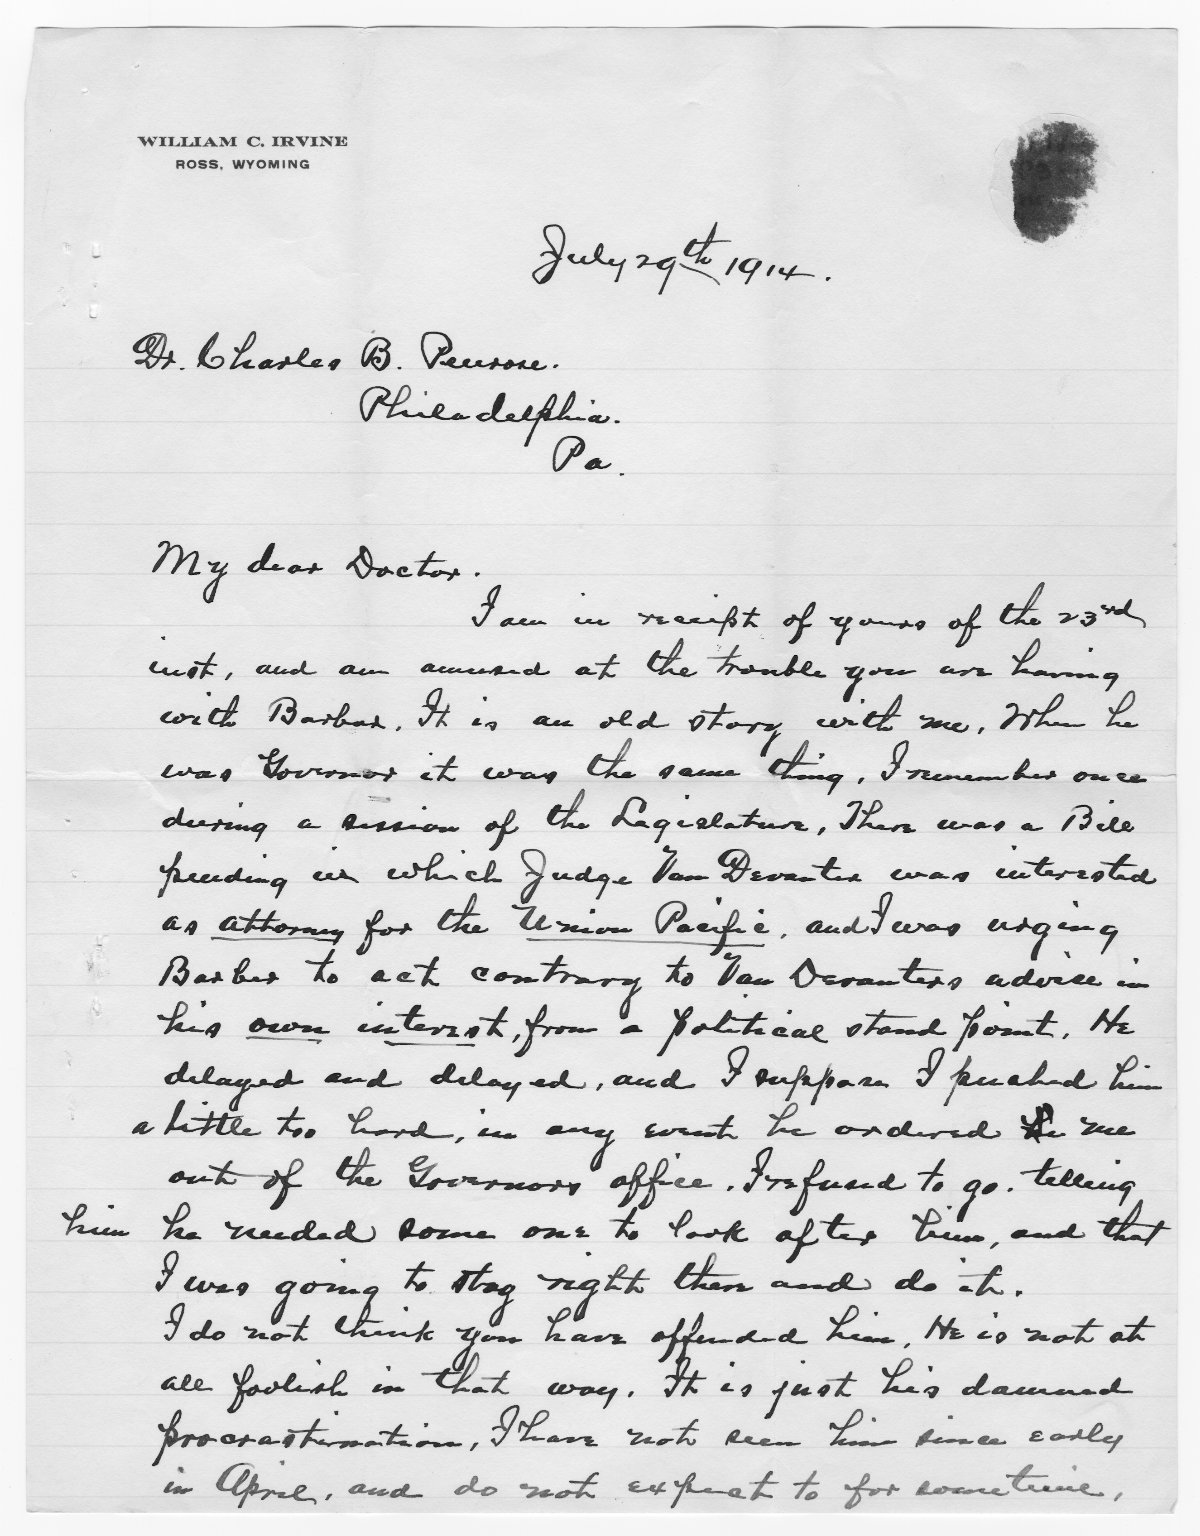 WILLIAM C. IRVINE
ROSS, WYOMING
July 29th 1914.
Dr. Charles B. Penrose.
Philadelphia.
Pa.
My dear Doctor.
I am in receipt of yours of the 23rd
inst, and am amused at the trouble you are having
with Barber. It is an old story with me. When he
was Governor it was the same thing. I remember once
during a session of the Legislature, There was a Bill
pending in which Judge Van Devanter was interested
as attorney for the Union Pacific, and I was urging
Barber to act contrary to Van Devanters advise in
his own interest, from a political stand point. He
delayed and delayed, and I suppose I pushed him
a little too hard, in any event he ordered me
out of the Governors office. I refused to go. telling
him he needed some one to look after him, and that
I was going to stay right there and do it.
I do not think you have offended him. He is not at
all foolish in that way. It is just his damned
procrastination, I have not seen him since early
in April, and do not expect to for sometime,